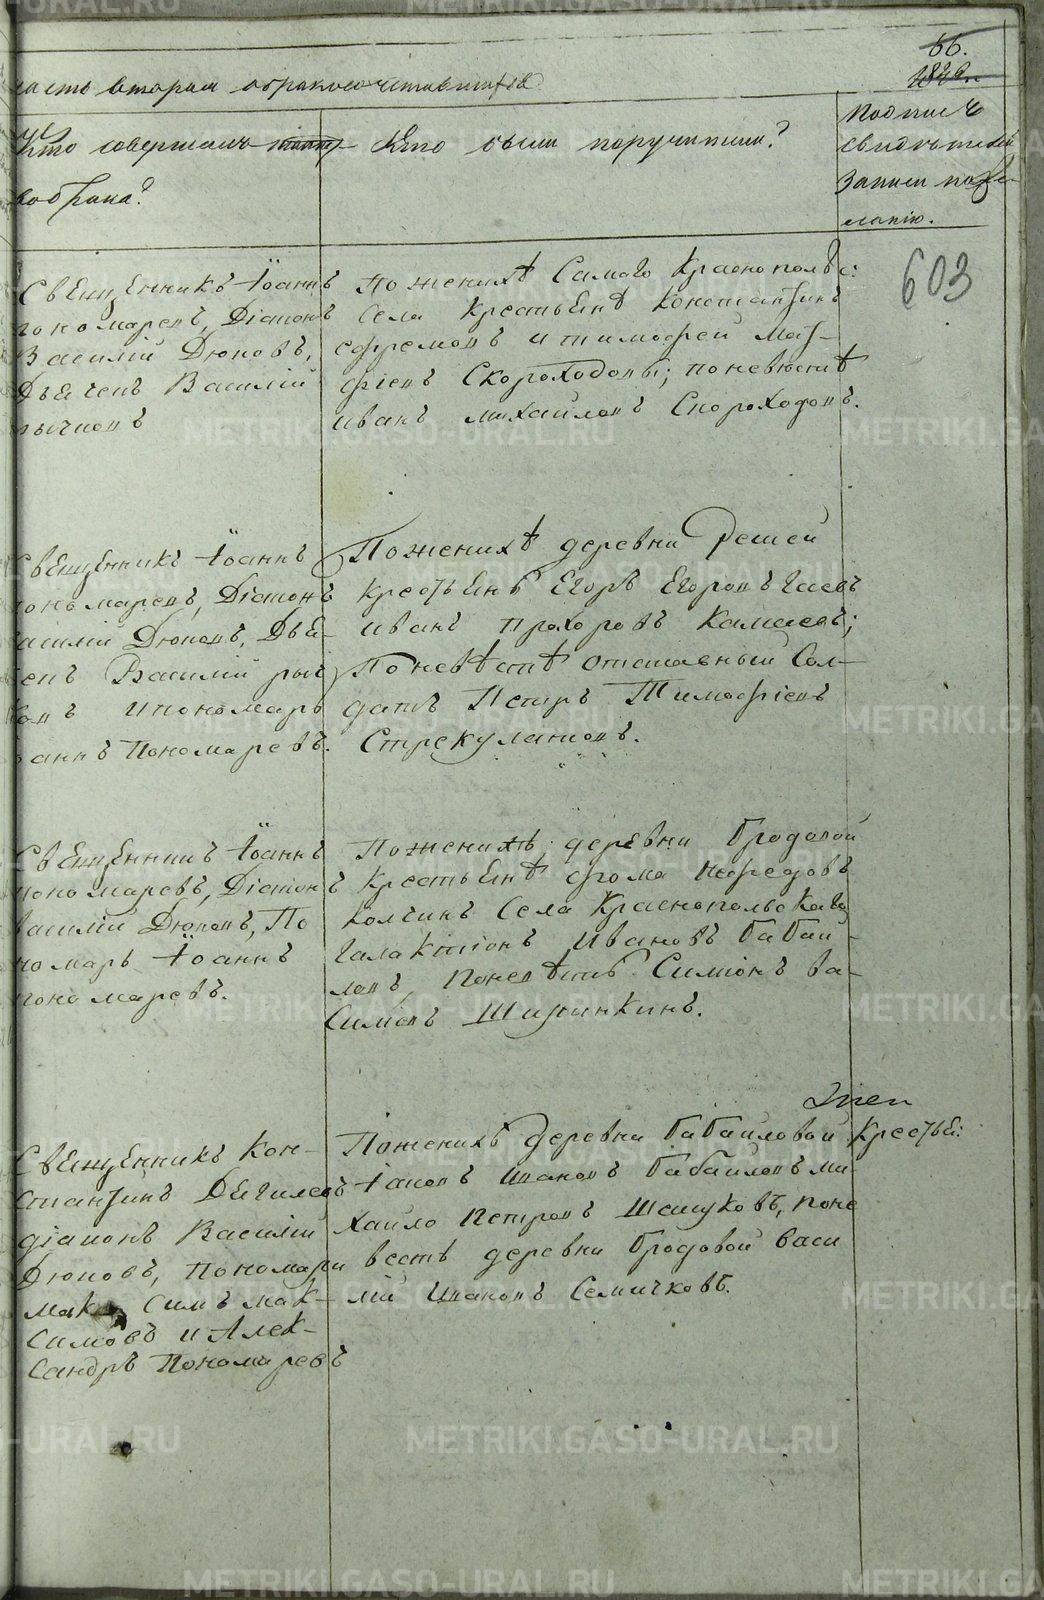 66.
часть вторая о бракосочетавшихся
Кто совершалъ
Кто были поручители?
Подписъ
свидѣтелей
записи по же-
ланію.
603
Свещенникъ Іоаннъ
пономаревъ, Діаконъ
Василій Дюковъ,
Дьячекъ Василій
рычковъ
По женихѣ Самаго Краснопольс:
Села Крестьенѣ Константинъ
ефремовъ и тимофей Мат-
фіевъ Скороходовы; по невюстѣ
иванъ михайловъ Скороходовъ.
Свещенникъ Іоаннъ
пономаревъ, Діаконъ
василій Дюковъ, Дье-
чекъ Василій рыч
ковъ и пономарь
Іоаннъ Пономаревъ.
По женихѣ деревни Решей
крестьенѣ Егоръ Егоровъ Гаевъ
иванъ Прохоровъ Камаевъ;
По невѣстѣ отставный Сол-
датъ Петръ Тимофіевъ
Стрекуловъ.
Свещенникъ Іоаннъ
пономаревъ, Діаконъ
василій Дюковъ, По
номарь Іоаннъ
пономаревъ.
По женихѣ деревни Бродовой
Крестьенѣ фома Нефедовъ
Колчинъ Села Краснопольскаго
Галактіонъ Ивановъ Бабай-
ловъ, По невѣстѣ Симіонъ Ва-
Силіевъ Ширинкинъ.
Свещенникъ Кон-
стантинъ Дегилевъ
діаконъ Василій
Дюковъ, пономари
Мак симъ мак-
Симовъ и Алек-
Сандръ Пономаревъ
По женихѣ деревни Бабайловой Крестье:
Іаковъ Ивановъ Бабайловъ ми-
хайло Петровъ Шашуковъ, по не
вестѣ деревни Бродовой Васи
лій Ивановъ Семичковъ.
METRIKI.GASO-URAL.RU